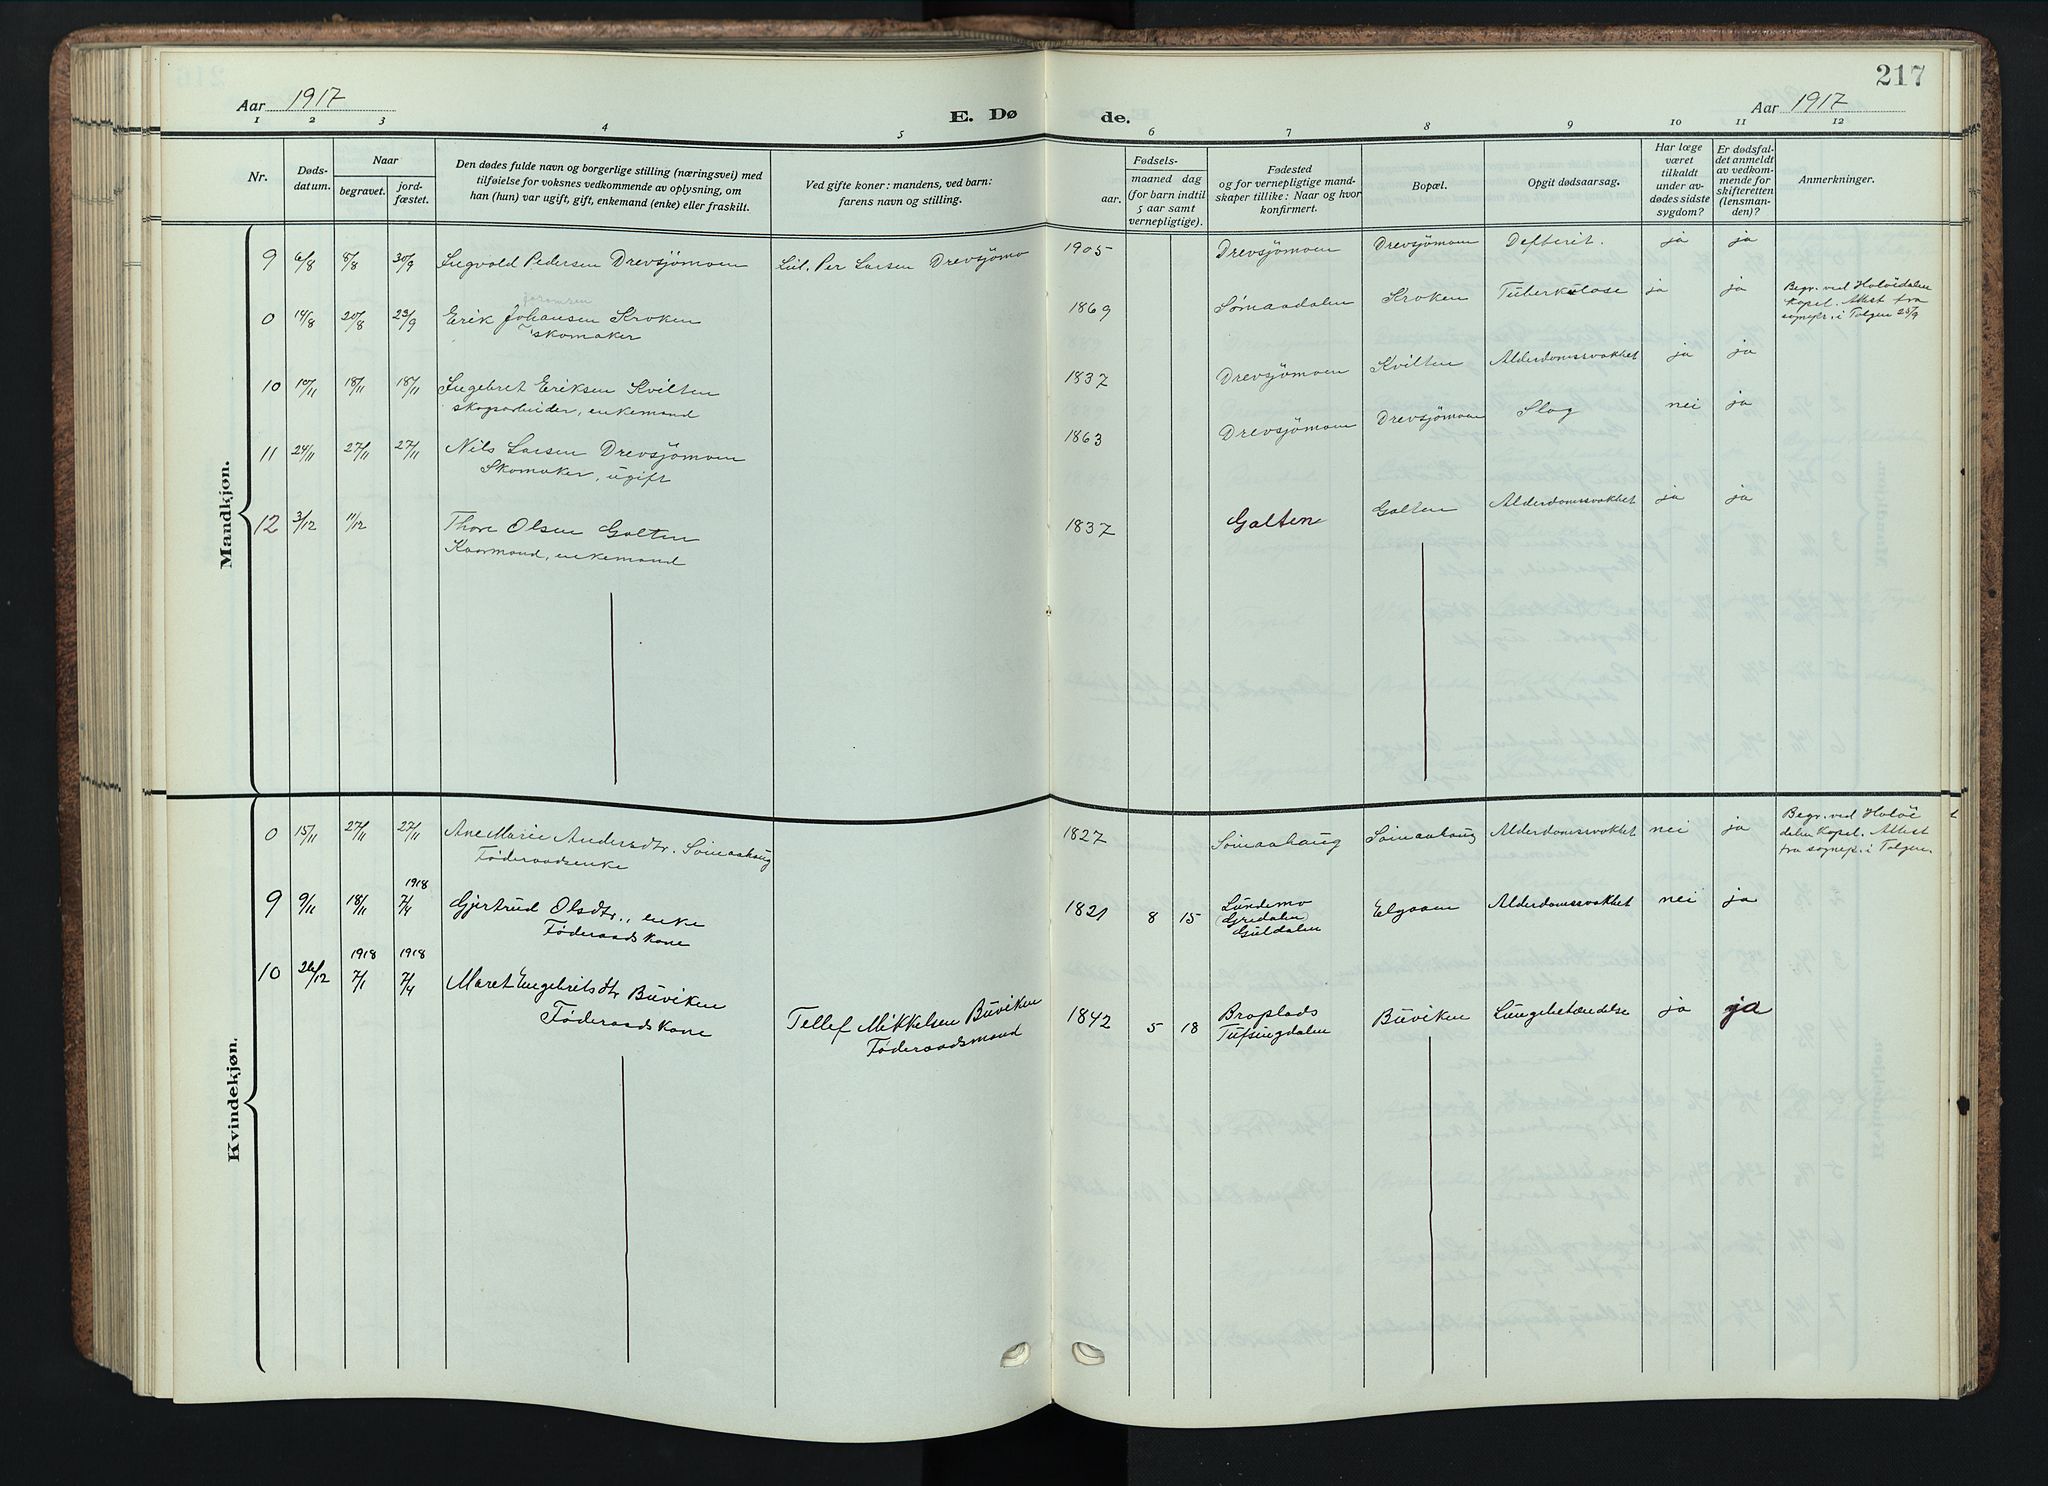 217
Aar 1917
Aar 1917
E. Dø
de.
1 2 3 4 5 6 7 8 9 10 11 12
Nr.
Døds-
datum.
Naar
begravet.
jord-
fæstet.
Den dødes fulde navn og borgerlige stilling (næringsvei) med
tilføielse for voksnes vedkommende av oplysning, om
han (hun) var ugift, gift, enkemand (enke) eller fraskilt.
Ved gifte koner: mandens, ved barn:
farens navn og stilling.
Fødsels-
aar.
maaned dag
(for barn indtil
5 aar samt
vernepligtige).
Fødested
og for vernepligtige mand-
skaper tillike: Naar og hvor
konfirmert.
Bopæl.
Opgit dødsaarsag.
Har læge
været
tilkaldt
under av-
dødes sidste
sygdom?
Er dødsfal-
det anmeldt
av vedkom-
mende for
skifteretten
(lensman-
den)?
Anmerkninger.
Mandkjøn.
9 6/8 8/8 30/9 Ingvald Pedersen Drevsjömoen Per Larsen Drevsjömo 1905 Drevsjömoen Drevsjömoen Defterit. ja ja
0 14/8 20/8 23/9 Erik Johansen Kroken 1869 Sømaadalen Kroken Tuberkulose ja ja Begr. ved Holöidalen
skomaker
Kapel. Attest fra
sognepr. i Tolgen 25/9
10 10/11 18/11 18/11 Ingebret Eriksen Kvilten 1837 Drevsjömoen Kvilten Alderdomssvakhet ja ja
skogsarbeider, enkemand
11 24/11 27/11 27/11 Nils Larsen Drevsjömoen 1863 Drevsjömoen Drevsjömoen Slag nei ja
Skomaker, ugift
12 3/12 11/12 Thore Olsen Galten 1837 Galten Galten Alderdomssvakhet ja ja
Kaarmand, enkemand
Kvindekjøn.
0 15/11 27/11 27/11 Ane Marie Andersdtr. Sömaahaug 1827 Sömaahaug Sömaahaug Alderdomssvakhet nei ja Begr. ved Holöi
Føderaadsenke
dalen Kapel. Attest
fra sognepr. i Tolgen.
1918
9 9/11 18/11 7/4 Gjertrud Olsdtr., enke 1821 8 15 Lundemo Elgaaen Alderdomssvakhet nei ja
Føderaadskone
Guldalen
1918 1918
10 26/12 7/1 7/4 Maret Engebritsdtr Buviken Tellef Mikkelsen Buviken 1842 5 18 Broplads Buviken Lungebetændelse ja ja
Føderaadskone Føderaadsmand Tufsingdalen